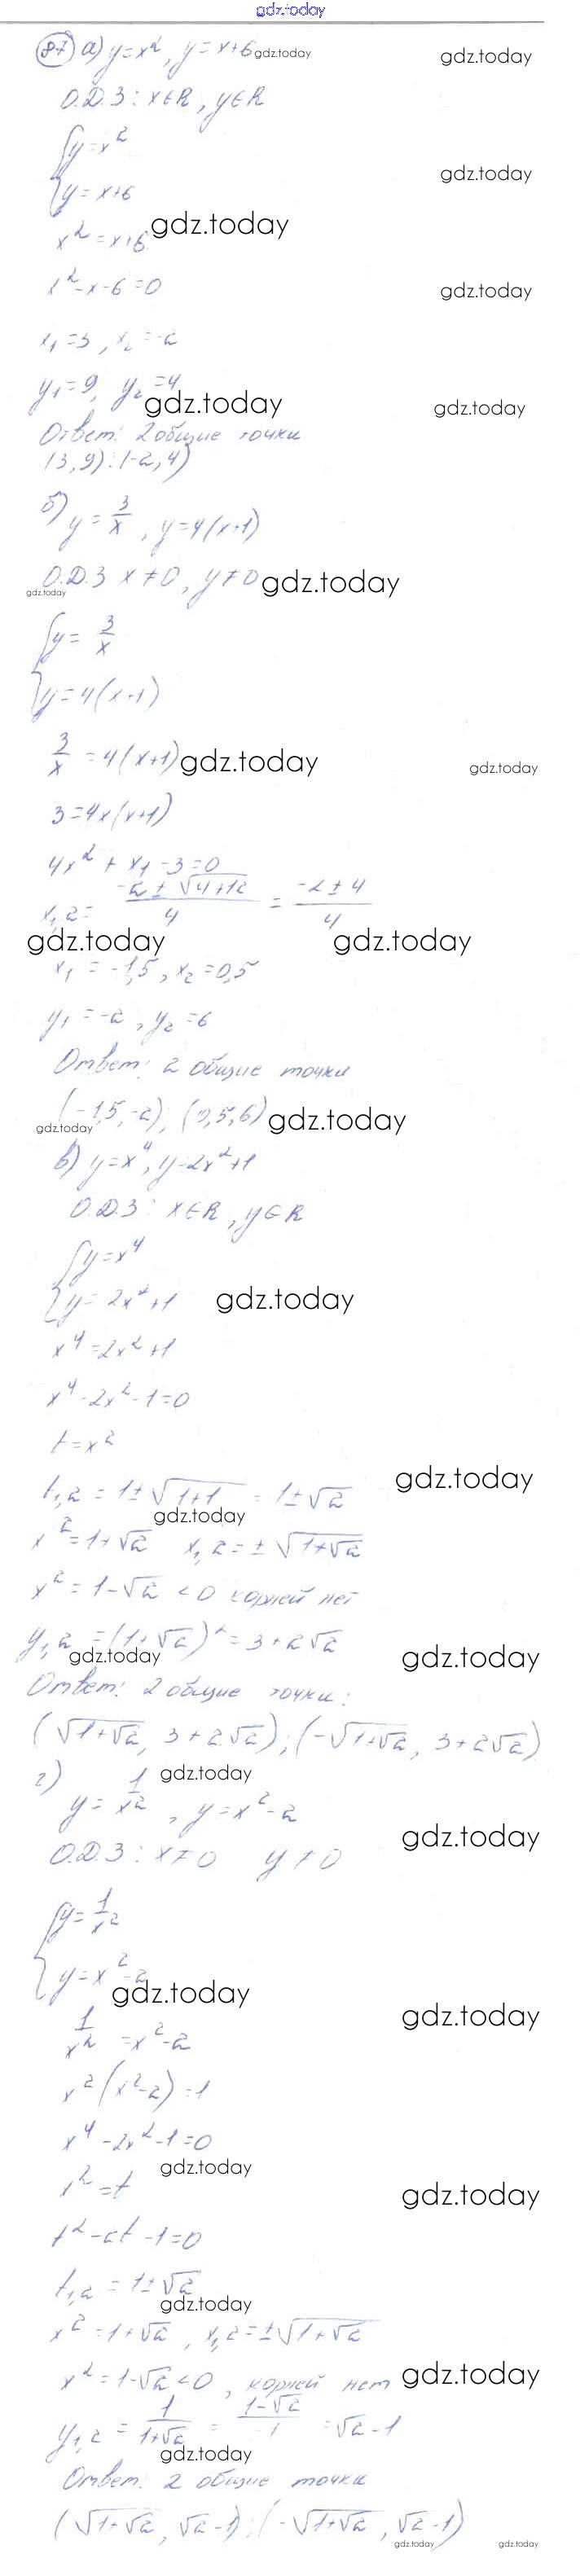 gdz.today
87 а) y=x², y=x+6 gdz.today gdz.today
О.Д.З: x∈R, y∈R
{y=x²
{y=x+6 gdz.today
x²=x+6 gdz.today
x²-x-6=0 gdz.today
x₁=3, x₂=-2
y₁=9, y₂=4 gdz.today gdz.today
Ответ: 2 общие точки
(3,9):(-2,4)
б) y=3/x, y=4(x+1)
О.Д.З x≠0, y≠0 gdz.today
gdz.today
{y=3/x
{y=4(x+1)
3/x=4(x+1) gdz.today gdz.today
3=4x(x+1)
4x²+x₁-3=0
x₁,₂=(-2±√(4+12))/4=(-2±4)/4
gdz.today gdz.today
x₁=-1,5, x₂=0,5
y₁=-2, y₂=6
Ответ: 2 общие точки
(-1,5,-2); (0,5,6) gdz.today
gdz.today
в) y=x⁴, y=2x²+1
О.Д.З: x∈R, y∈R
{y=x⁴
{y=2x²+1 gdz.today
x⁴=2x²+1
x⁴-2x²-1=0
t=x²
t₁,₂=1±√(1+1)=1±√2 gdz.today
gdz.today
x²=1+√2 x₁,₂=±√(1+√2)
x²=1-√2<0 корней нет
y₁,₂=(1+√2)²=3+2√2
gdz.today gdz.today
Ответ: 2 общие точки:
(√(1+√2), 3+2√2); (-√(1+√2), 3+2√2)
г) gdz.today
y=1/x², y=x²-2
О.Д.З: x≠0 y≠0 gdz.today
{y=1/x²
{y=x²-2 gdz.today
1/x²=x²-2 gdz.today
x²(x²-2)=1
x⁴-2x²-1=0
gdz.today
x²=t gdz.today
t²-2t-1=0
t₁,₂=1±√2
gdz.today
x²=1+√2, x₁,₂=±√(1+√2)
x²=1-√2<0, корней нет gdz.today
y₁,₂=1/(1+√2)=(1-√2)/-1=√2-1
gdz.today
Ответ: 2 общие точки
(√(1+√2), √2-1); (-√(1+√2), √2-1)
gdz.today gdz.today